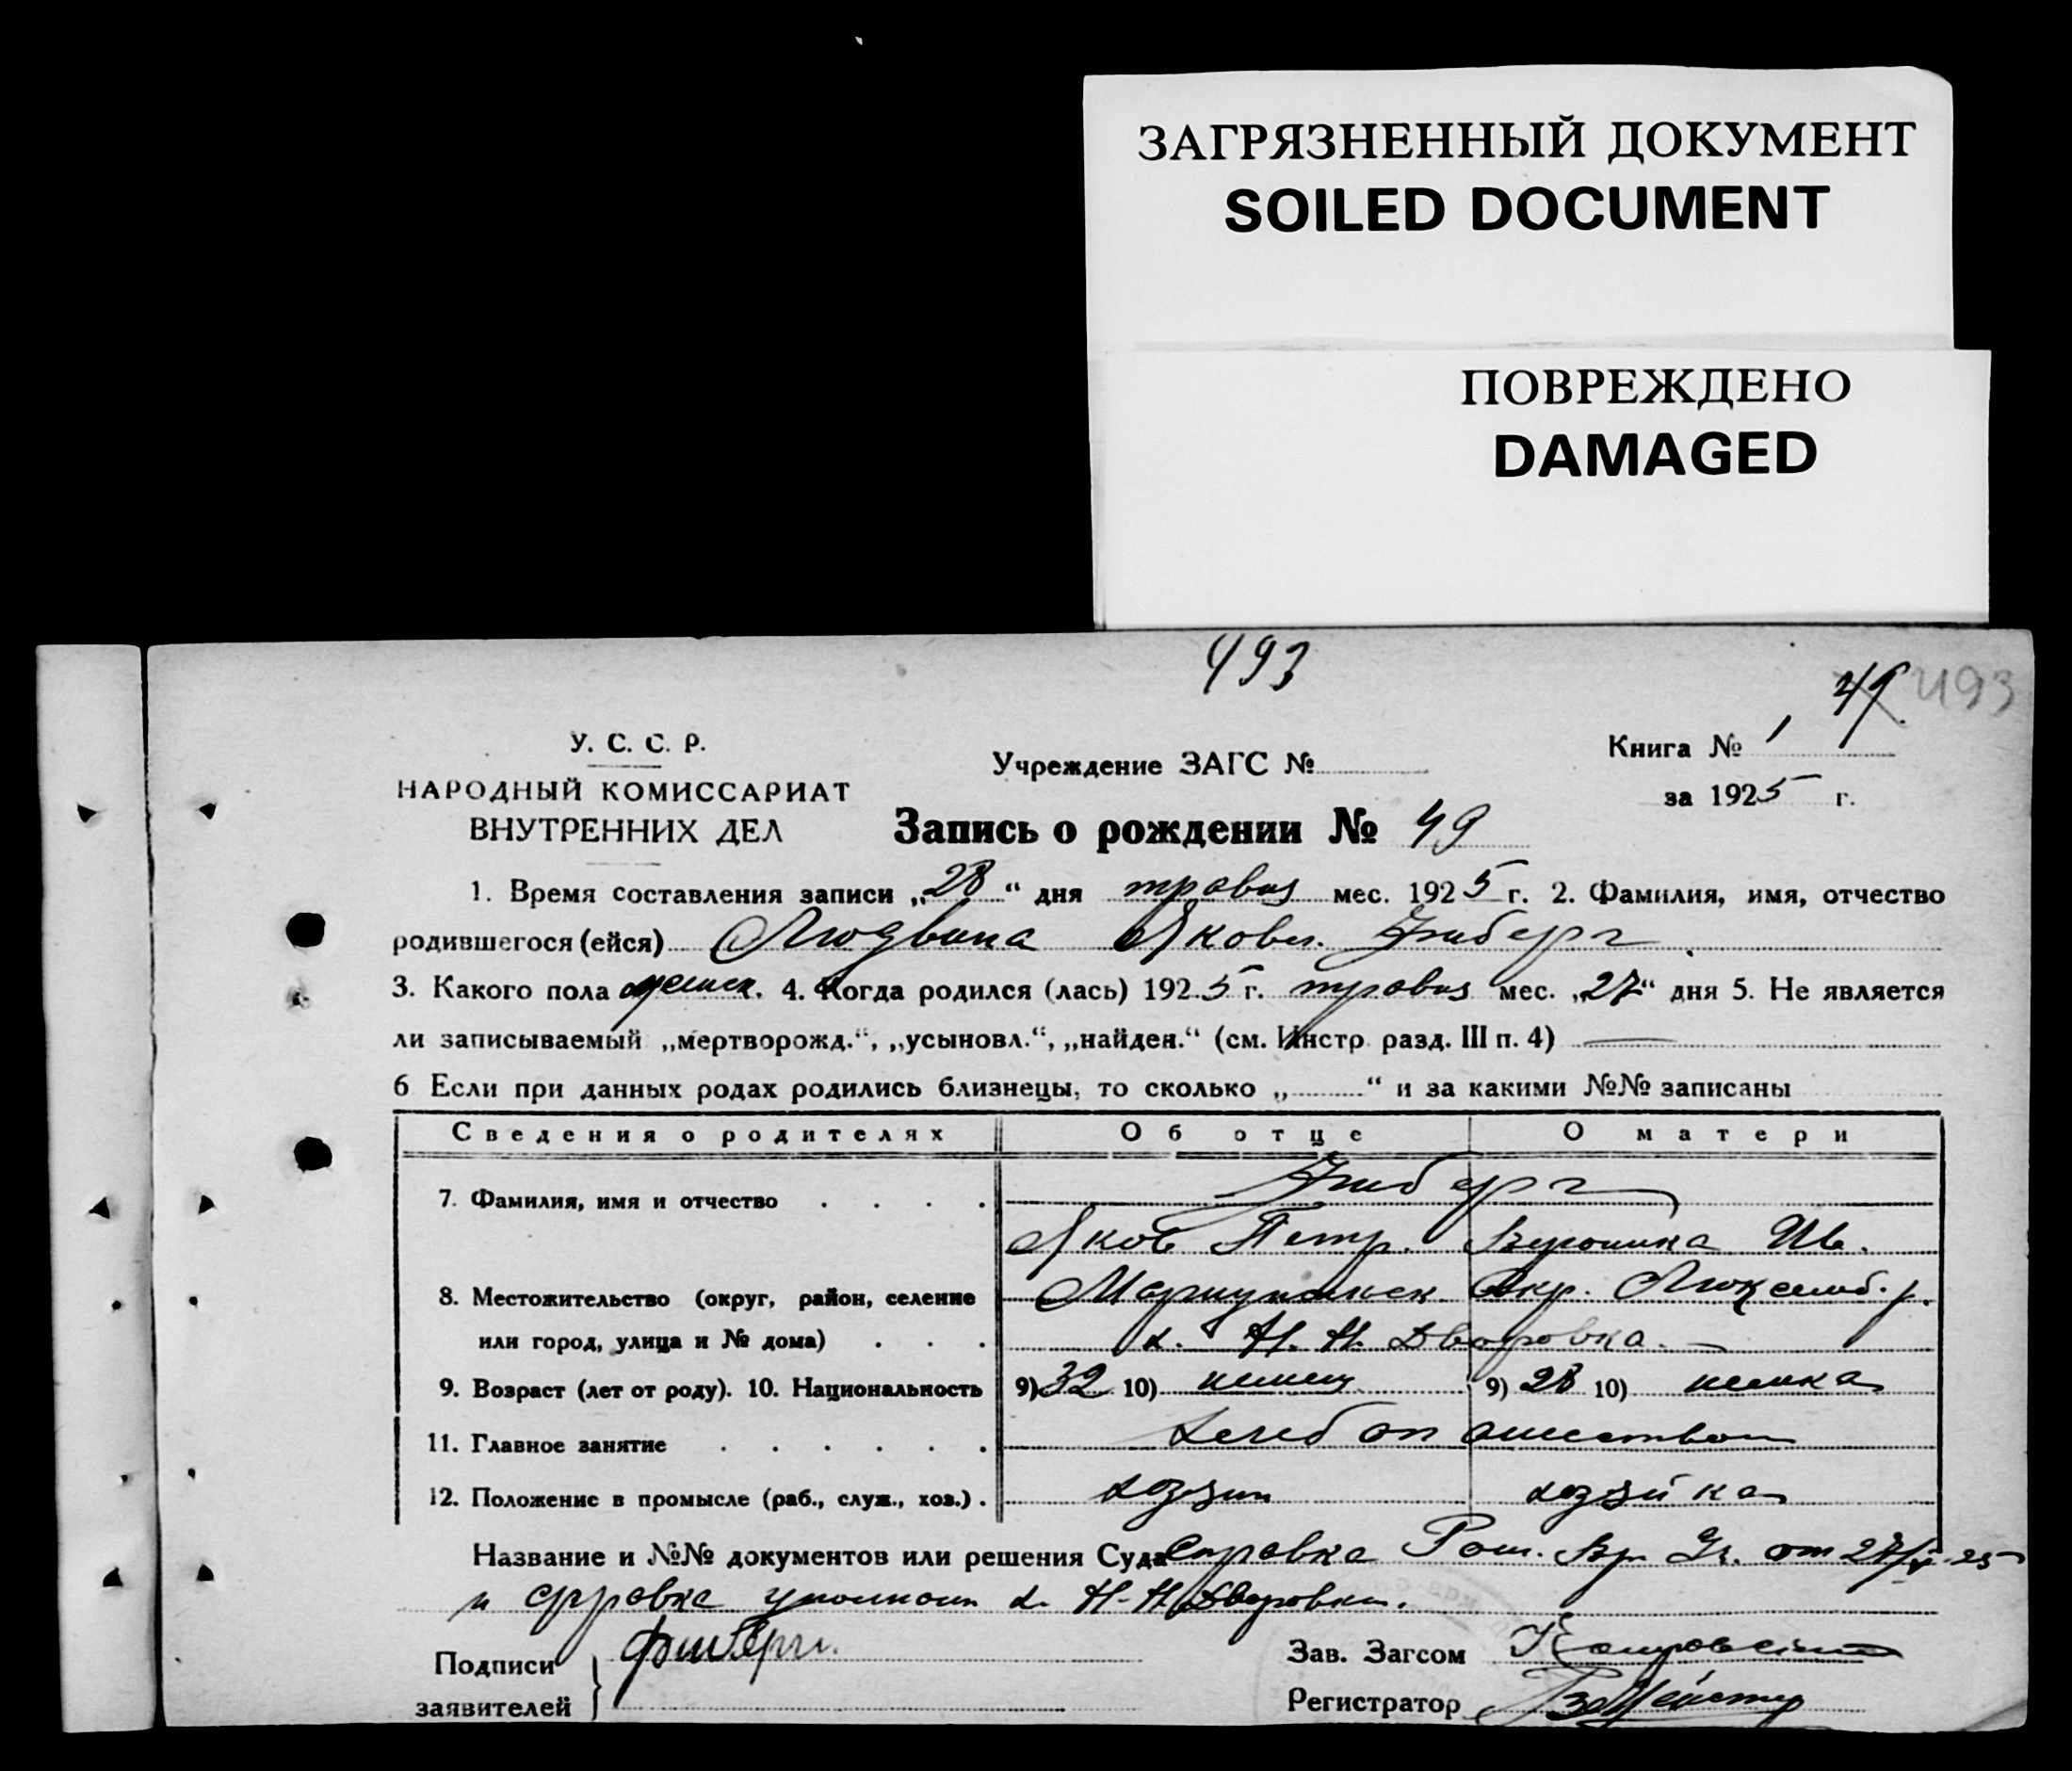 ЗАГРЯЗНЕННЫЙ ДОКУМЕНТ
SOILED DOCUMENT
ПОВРЕЖДЕНО
DAMAGED
493
49. 493
У. С. С. Р.
НАРОДНЫЙ КОМИССАРИАТ
ВНУТРЕННИХ ДЕЛ
Учреждение ЗАГС №
Книга № 1
за 1925 г.
Запись о рождении № 49
1. Время составления записи „28“ дня травня мес. 1925 г. 2. Фамилия, имя, отчество
родившегося (ейся) Людвина Яковл.
3. Какого пола женск. 4. Когда родился (лась) 1925 г. травня мес. „27“ дня 5. Не является
ли записываемый „мертворожд.“, „усыновл.“, „найден.“ (см. Инстр. разд. III п. 4) —
6 Если при данных родах родились близнецы, то сколько „ “ и за какими №№ записаны
Сведения о родителях Об отце О матери
7. Фамилия, имя и отчество
Яков Петр. Вероника Ив.
8. Местожительство (округ, район, селение Мариупольск. Окр. Люксемб. р.
или город, улица и № дома) х. Н. Н. Дворовка. —
9. Возраст (лет от роду). 10. Национальность 9) 32 10) немец 9) 28 10) немка
11. Главное занятие хлебопашеством
12. Положение в промысле (раб., служ., хоз.). хозяин хозяйка
Название и №№ документов или решения Суда Справка от 27/V-25
и справка х. Н-Н Дворовки.
Подписи
заявителей
Зав. Загсом
Регистратор